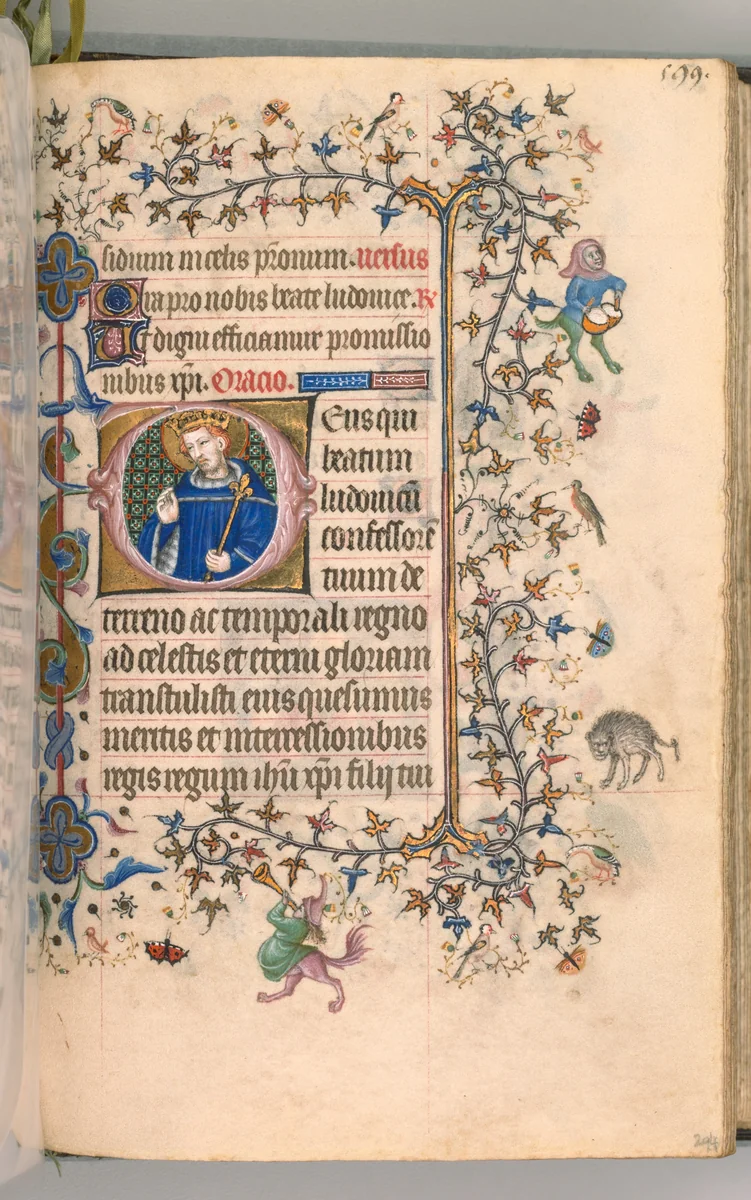 199.
sidium in celis p̄ronum. uersus
Ora pro nobis beate ludouice. R
Ut digni efficiamur promissio
nibus xp̄i. Oracio.
Deus qui
beatum
ludouicū
confessorē
tuum de
terreno ac temporali regno
ad celestis et eterni gloriam
transtulisti eius quesumus
meritis et intercessionibus
regis regum ih̄u xp̄i filij tui
294